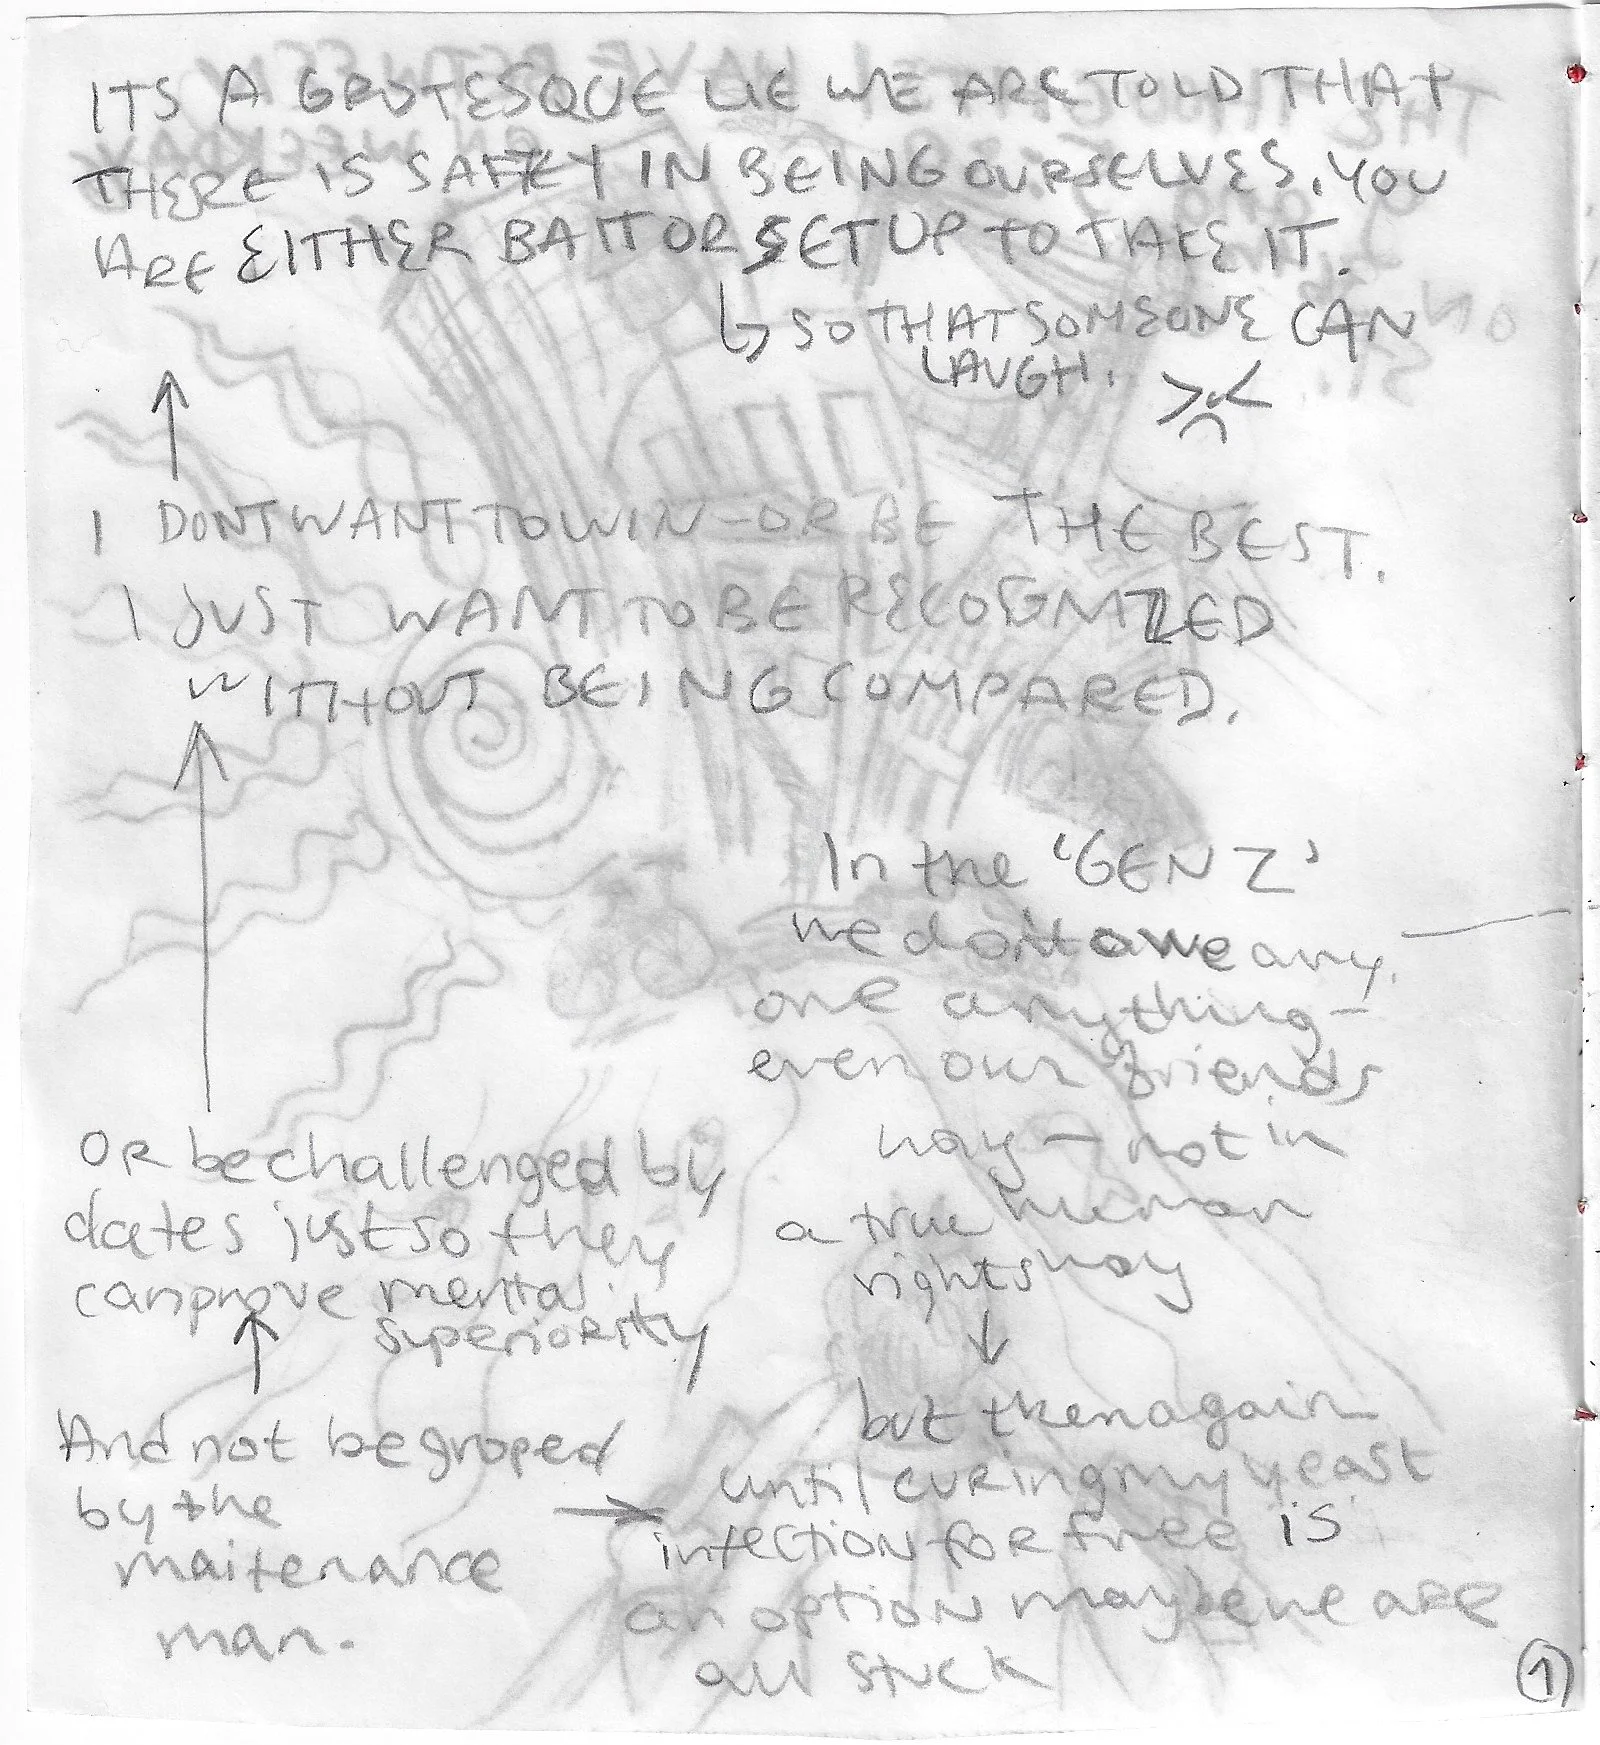 ITS A GROTESQUE LIE WE ARE TOLD THAT
THERE IS SAFTEY IN BEING OURSELVES. YOU
ARE EITHER BAIT OR SET UP TO TAKE IT.
↳ SO THAT SOMEONE CAN
LAUGH.
I DONT WANT TO WIN - OR BE THE BEST.
I JUST WANT TO BE RECOGNIZED
WITHOUT BEING COMPARED.
OR be challenged by
dates just so they
can prove mental
superiority
And not be groped
by the
maitenance
man.
In the 'GEN Z'
we don't owe any
one anything -
even our friends
way - not in
a true human
rights way
but then again
until curing my yeast
infection for free is
an option maybe we are
all stuck
1